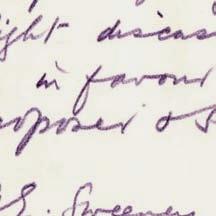 ight discus
in favour
roposer & S
E. Sweeney